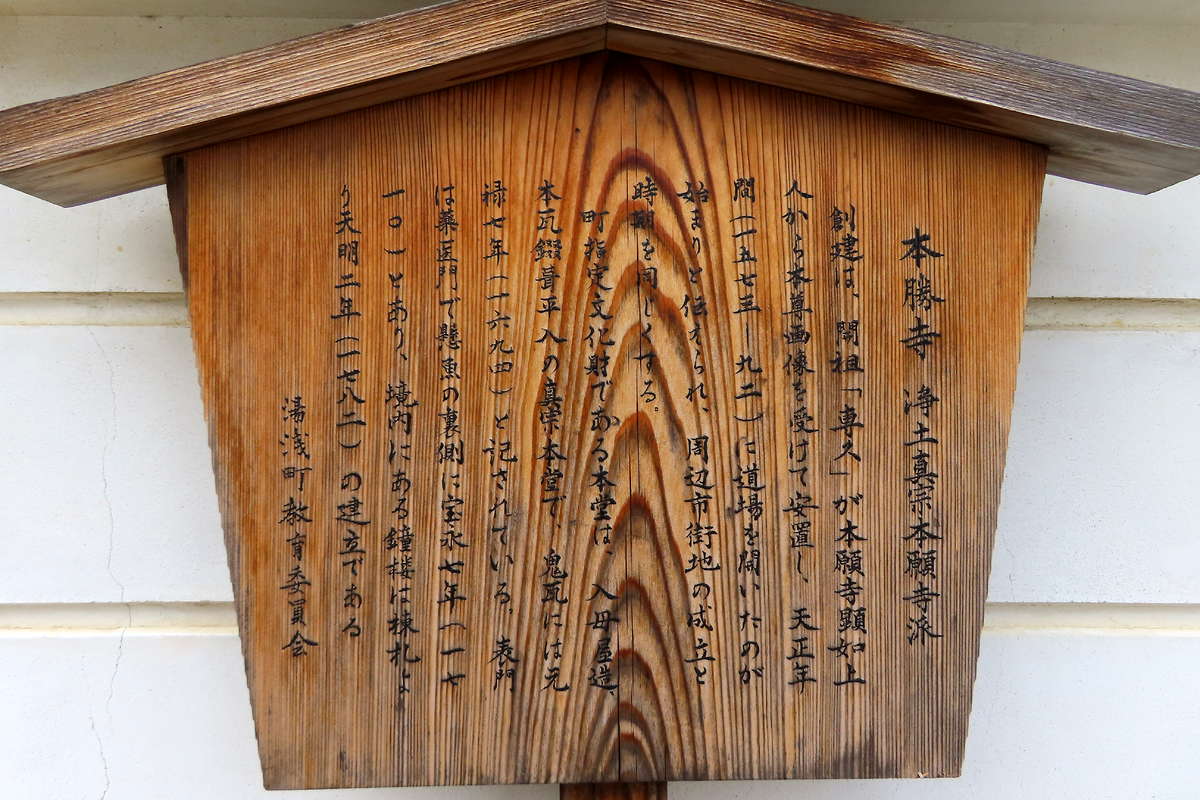 本勝寺 浄土真宗本願寺派
創建は、開祖「専久」が本願寺顕如上
人から本尊画像を受けて安置し、天正年
間（一五七三－九二）に道場を開いたのが
始まりと伝えられ、周辺市街地の成立と
時期を同じくする。
町指定文化財である本堂は、入母屋造、
本瓦錣葺平入の真宗本堂で、鬼瓦には元
禄七年（一六九四）と記されている。表門
は薬医門で懸魚の裏側に宝永七年（一七
一〇）とあり、境内にある鐘楼は棟札よ
り天明二年（一七八二）の建立である
湯浅町教育委員会